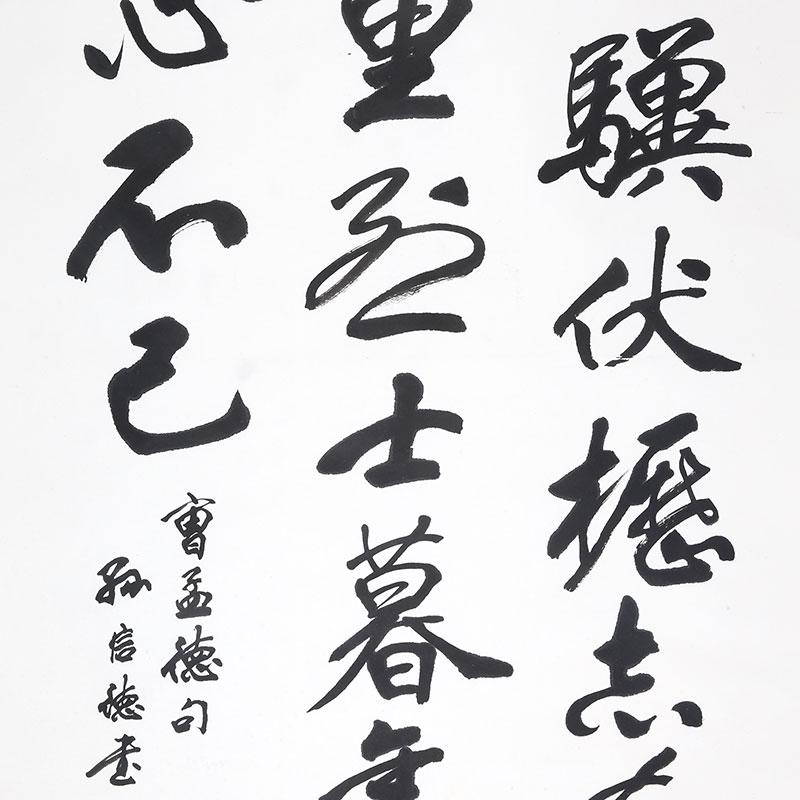 驥伏櫪志在
里烈士暮年
心不已
曹孟德句
孫信德書